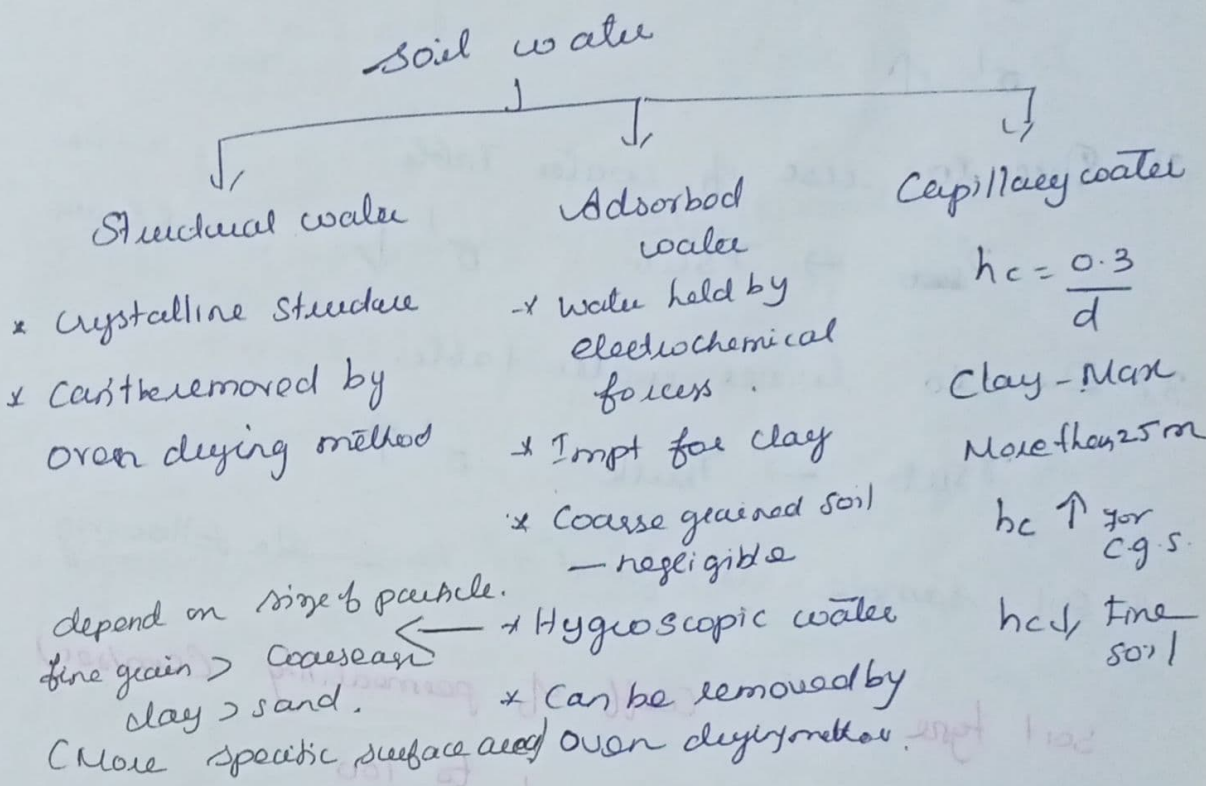 Soil water
Structural water
* Crystalline Structure
* Can't be removed by
oven drying method
Adsorbod
water
* Water held by
electrochemical
forcess.
* Impt for clay
* Coarse grained soil
— negligible
* Hygroscopic water
* Can be removed by
oven drying method.
depend on size of particle.
fine grain > Coarse
clay > sand.
(More specific surface area)
Capillary water
hc = 0.3
d
Clay - Max
More than 25 m
hc ↑ for
c.g.s.
hc ↓ Fine
soil